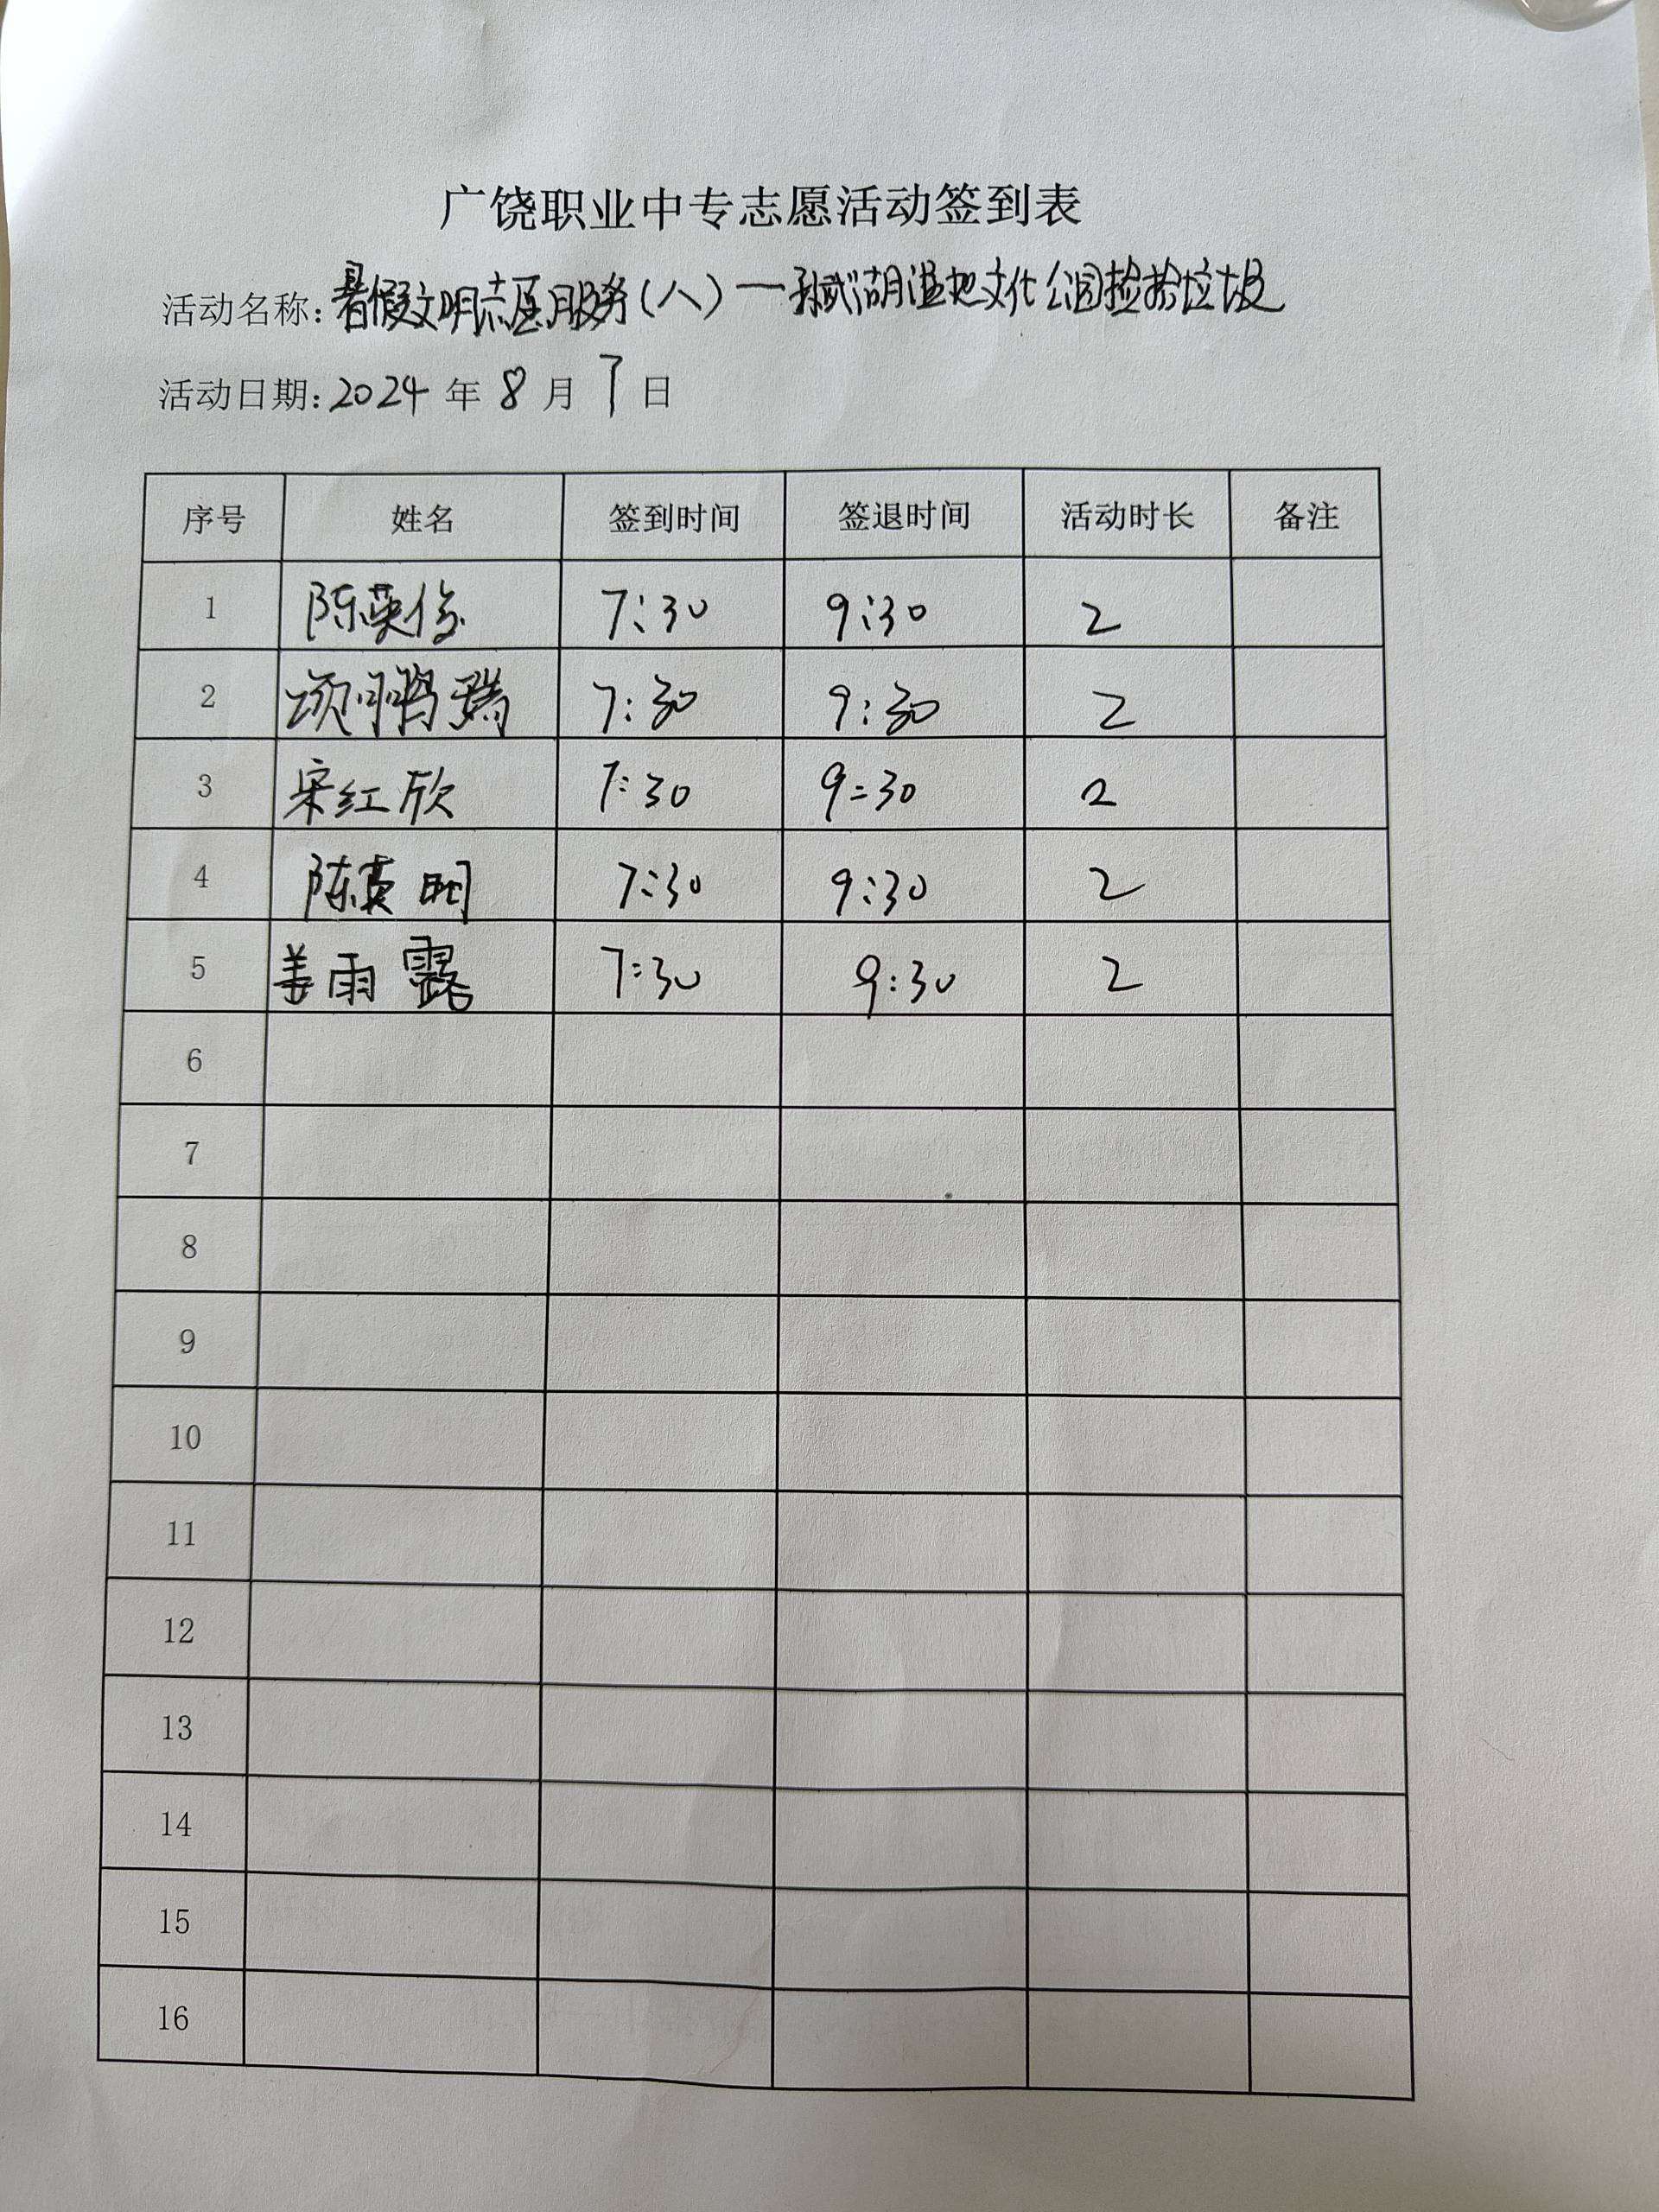 广饶职业中专志愿活动签到表
活动名称:暑假文明志愿服务(八)一孙武湖湿地文化公园捡拾垃圾
活动日期:2024年8月7日
序号 姓名 签到时间 签退时间 活动时长 备注
1 陈英俊 7:30 9:30 2
2 项鹏瑞 7:30 9:30 2
3 宋红欣 7:30 9:30 2
4 陈英明 7:30 9:30 2
5 姜雨露 7:30 9:30 2
6
7
8
9
10
11
12
13
14
15
16